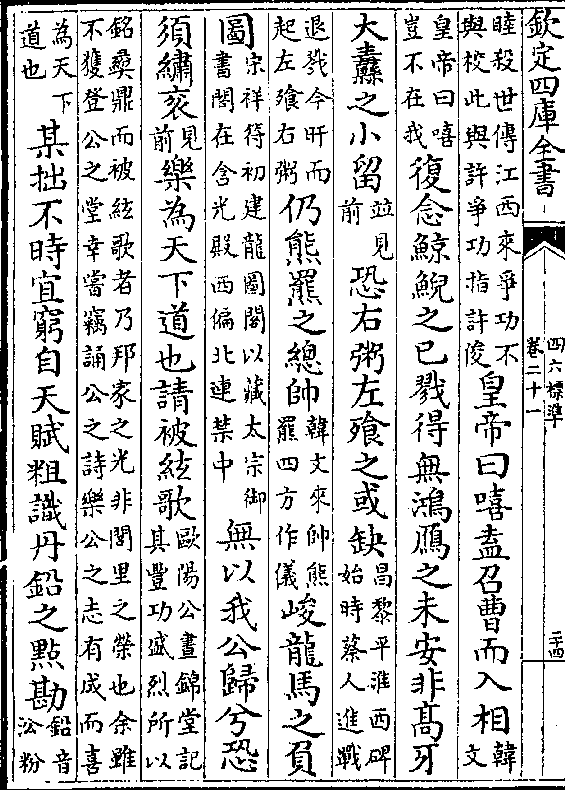 欽定四庫全書
四六標準
卷二十一
二十四
睦殺世傳江西來爭功不
與校此與許爭功指許俊
皇帝曰嘻盍召曹而入相
韓
文
皇帝曰嘻
豈不在我
復念鯨鯢之已戮得無鴻鴈之未安非髙牙
大纛之小留
並見
前
恐右粥左飱之或缺
昌黎平淮西碑
始時蔡人進戰
退戮今旰而
起左飱右粥
仍熊羆之總帥
韓文來帥熊
羆四方作儀
峻龍馬之負
圖
宋祥符初建龍圖閣以藏太宗御
書閣在含光殿西偏北連禁中
無以我公歸兮恐
須繡衮
見
前
樂為天下道也請被絃歌
歐陽公晝錦堂記
其豐功盛烈所以
銘彞鼎而被絃歌者乃邦家之光非閭里之榮也余雖
不獲登公之堂幸嘗竊誦公之詩樂公之志有成而喜
為天下
道也
某拙不時宜窮自天賦粗識丹鉛之點勘
鉛音
㳂粉